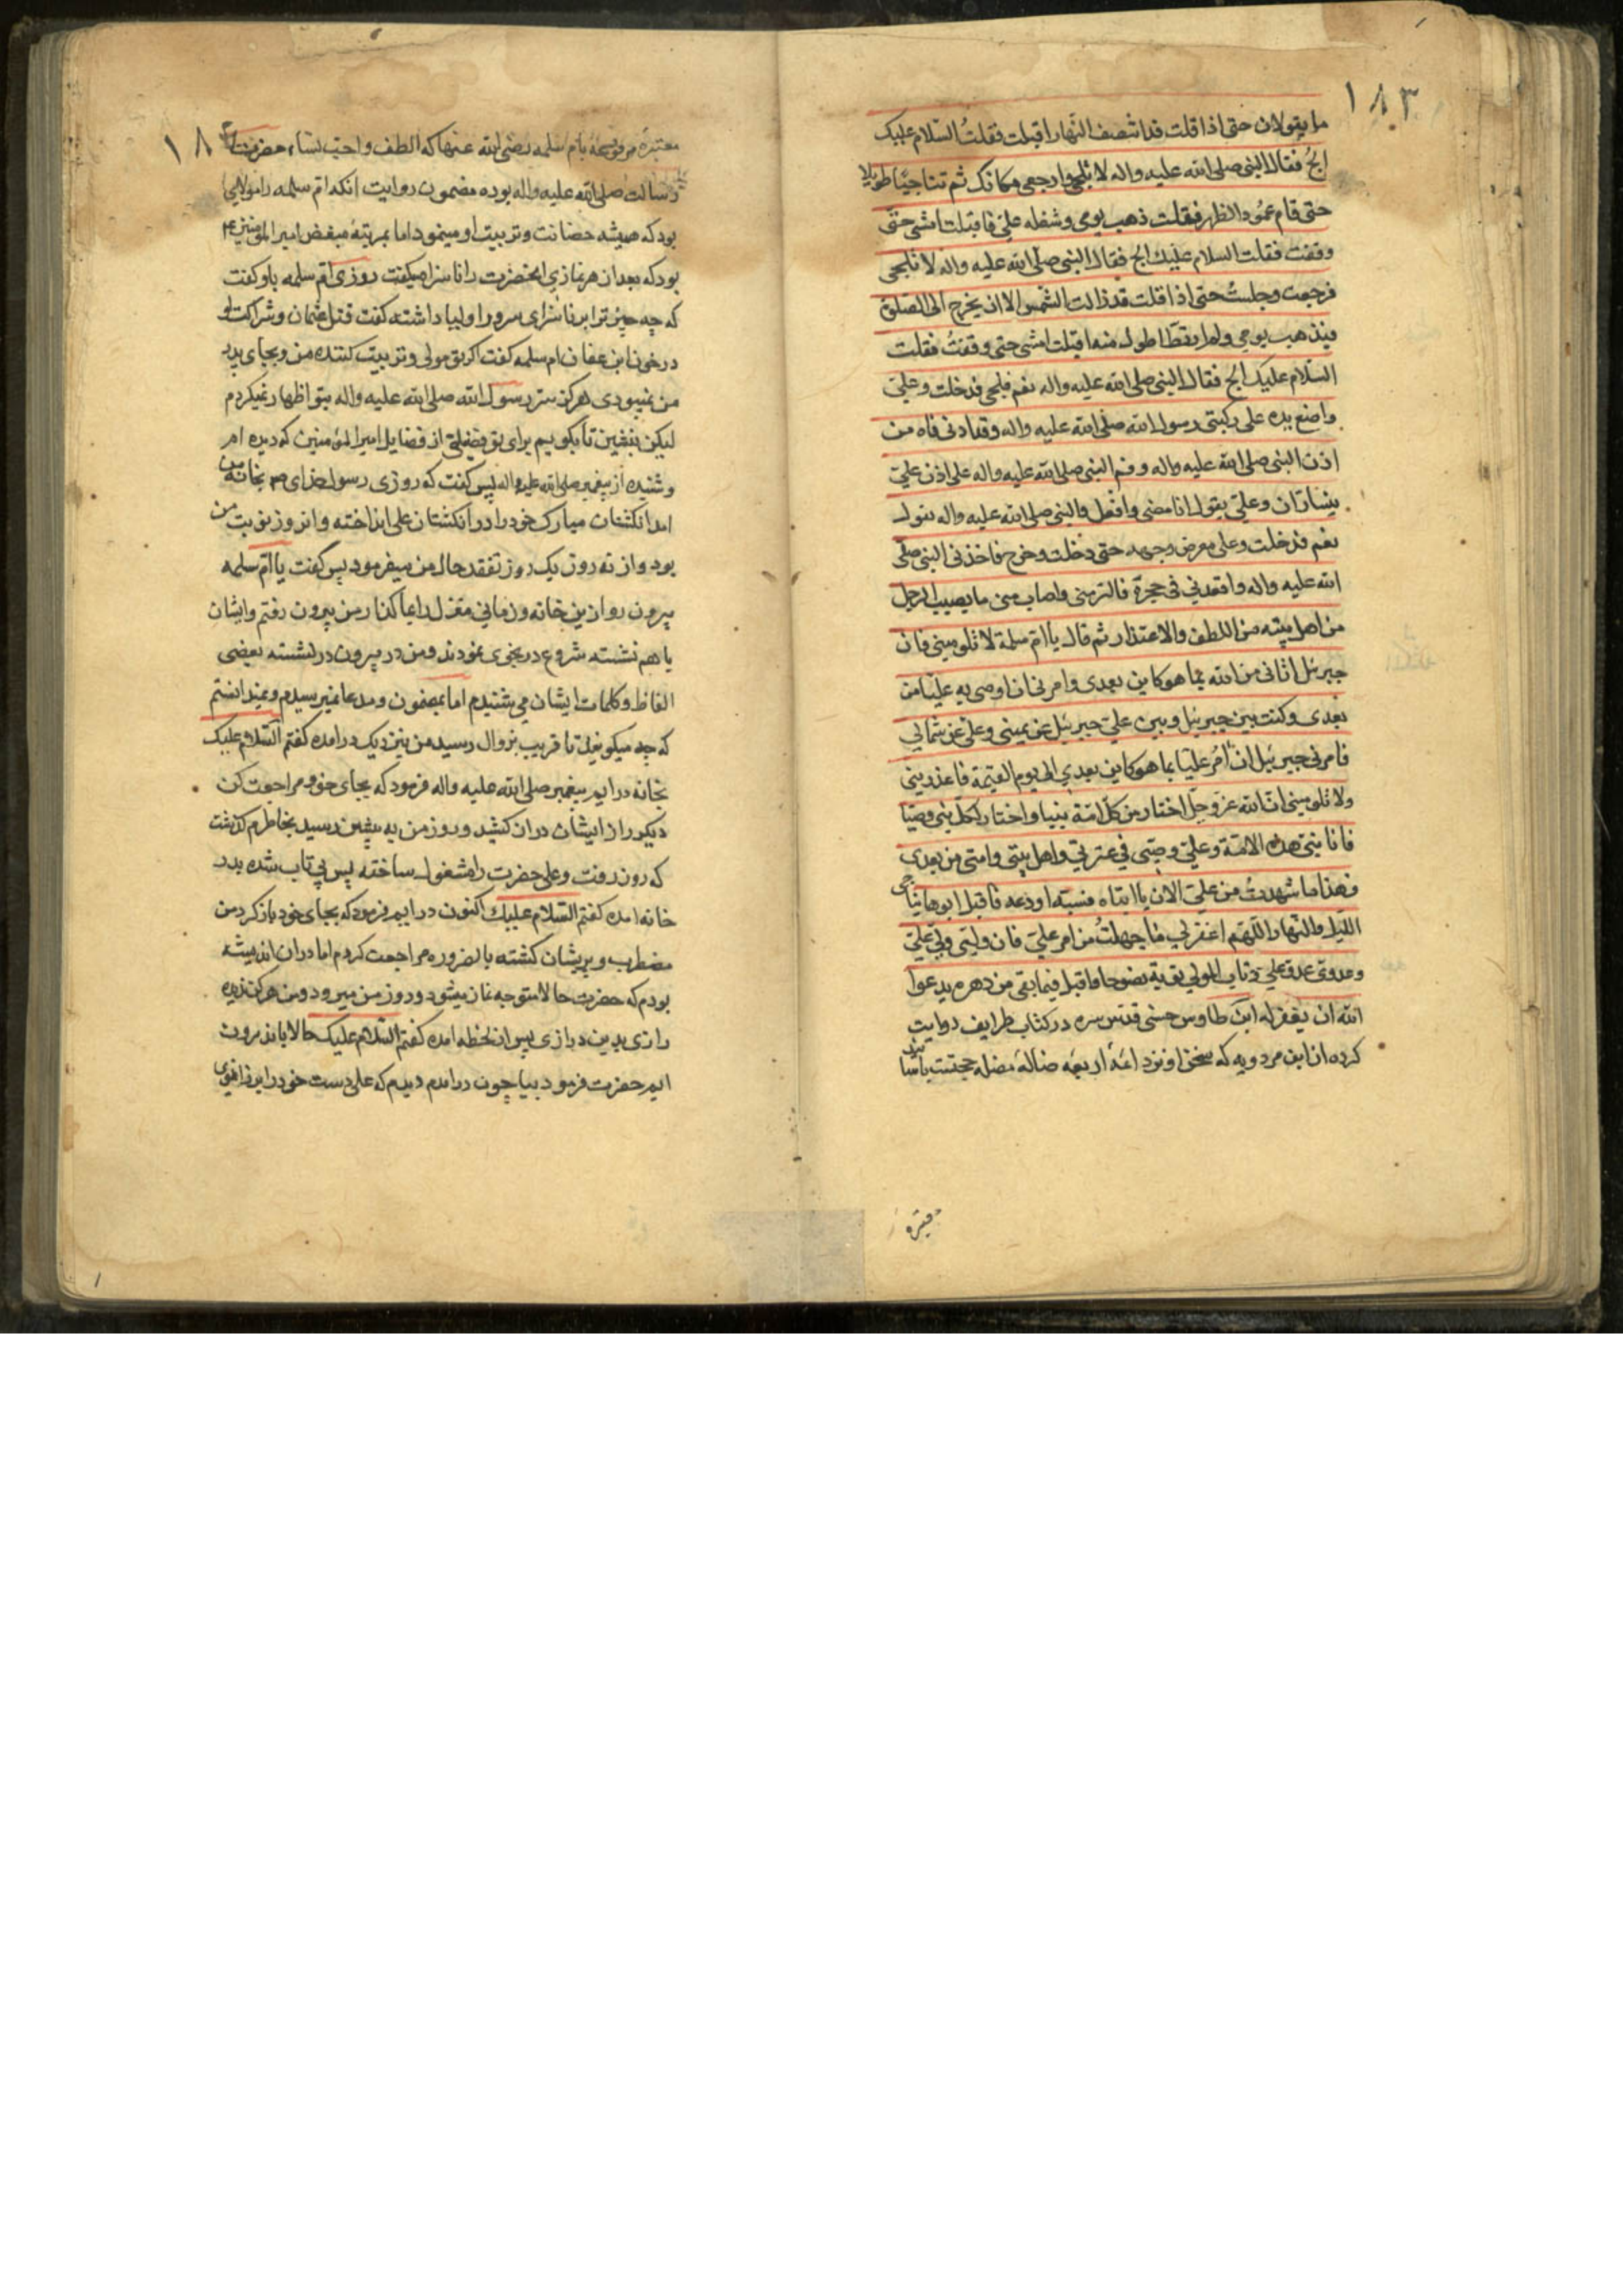 ١٨٣
ما یقولان حتی اذا قلت قد انتصف النهار اقبلت فقلتُ السّلام علیک
الجُ فقال النبی صلی الله علیه واله لا تلجی وارجعی مکانک ثم تناجیا طویلا
حتی قام عمود الظهر فقلت ذهب یومی وشغله علیّ فاقبلت امشی حتّی
وقفت فقلت السلام علیک الج فقال النبی صلی الله علیه واله لا تلجی
فرجعت وجلستُ حتی اذا قلت قد زالت الشمس الان یخرج الی الصلوة
فیذهب یومی ولم ار قط اطول منه اقبلت امشی حتی وقفتُ فقلت
السّلام علیک الج فقال النبی صلی الله علیه واله نعم فلجی فدخلت وعلیّ
واضع یده علی رکبتی رسول الله صلی الله علیه واله وقد ادنی فاه من
اذن النبی صلی الله علیه واله وفم النبی صلی الله علیه واله علی اذن علیّ
یتسارّان وعلیّ یقول افامضی وافعل والنبی صلی الله علیه واله یقول
نعم فدخلت وعلی معرض وجهه حتی دخلت وخرج فاخذنی النبی صلّی
الله علیه واله واقعدنی فی حجره فالتزمنی واصاب منی ما یصیب الرجل
من اهل بیته من اللطف والاعتذار ثم قال یا امّ سلمة لا تلومینی فان
جبرئل اتانی من الله بما هو کاین بعدی وامرنی ان اوصی به علیّا من
بعدی وکنت بین جبرئیل وبین علیّ جبرئیل عن یمینی وعلی عن شمالی
فامرنی جبرئیل ان اٰمُر علیّا بما هو کاین بعدی الی یوم القیمة فاعذرینی
ولا تلومینی انّ الله عزّ وجلّ اختار من کلّ امّة نبیا واختار لکلّ نبی وصیّا
فانا نبیّ هذه الامّة وعلیّ وصیّی فی عترتی واهل بیتی وامتی من بعدی
فهذا ما شهدتُ من علیّ الان یا ابتاه فسبّه او دعه فاقبل ابوها یناجی
اللیل والنهار اللّهم اغفر لی ما جهلتُ من امر علیّ فان ولیّی ولیّ علیّ
وعدوّی عدوّ علیّ وتاب المولی توبة نصوحا فاقبل فیما بقی من دهره یدعوا
الله ان یغفر له ابن طاوس حسنی قدّس سره در کتاب طرایف روایت
کرده از ابن مردویه که سخن او نزد ائمّه اربعه ضالّه مضله حجتست باسناد
معتبره
معتبره مرفوعه بامّ سلمه رضی الله عنها که الطف واحبّ نساء حضرت
رسالت صلی الله علیه واله بوده مضمون روایت انکه امّ سلمه را مولایی
بود که همیشه حضانت وتربیت او مینمود اما بمرتبهٔ مبغض امیر المؤمنین ع
بود که بعد از هر نمازی انحضرت را ناسزا میگفت روزی امّ سلمه باو گفت
که چه چیز ترا بر ناسزای سرور اولیا داشته گفت قتل عثمان وشراکت او
در خون ابن عفان ام سلمه گفت اکر تو مولی وتربیت کننده من وبجای پدر
من نمیبودی هرکز سرّ رسول الله صلی الله علیه واله بتو اظهار نمیکردم
لیکن بنشین تا بکویم برای تو فضیلتی از فضایل امیر المؤمنین که دیده ام
وشنیده از پیغمبر صلی الله علیه واله پس گفت که روزی رسول خدای ص بخانه من
امد انکشتان مبارک خود را در انکشتان علی انداخته وانروز نوبت من
بود واز نه روز یک روز تفقد حال من میفرمود پس گفت یا امّ سلمه
بیرون رو از این خانه وزمانی مغزل دایماً کنار من بیرون رفتم وایشان
با هم نشسته شروع در نجوی نمودند ومن در بیرون در نشسته بعضی
الفاظ وکلمات ایشان می شنیدم اما بمضمون ومدعا نمیرسیدم ونمیدانستم
که چه میکویند تا قریب بزوال رسید من نزدیک در امده گفتم السّلام علیک
بخانه درایم پیغمبر صلی الله علیه واله فرمود که بجای خود مراجعت کن
دیکر راز ایشان دراز کشید وروز من به پیشین رسید بخاطرم گذشت
که روز رفت وعلی حضرت را مشغول ساخته پس بی تاب شده بدر
خانه امده گفتم السّلام علیک اکنون درایم فرمود که بجای خود باز کرد من
مضطرب وپریشان کشته بالضروره مراجعت کردم اما در ان اندیشه
بودم که حضرت حالا متوجه نماز میشود وروز من میرود ومن هرکز ندیدم
رازی بدین درازی پس از لحظه امده گفتم السّلام علیک حالا باندرون
ایم حضرت فرمود بیا چون درامدم دیدم که علی دست خود را بر زانوی